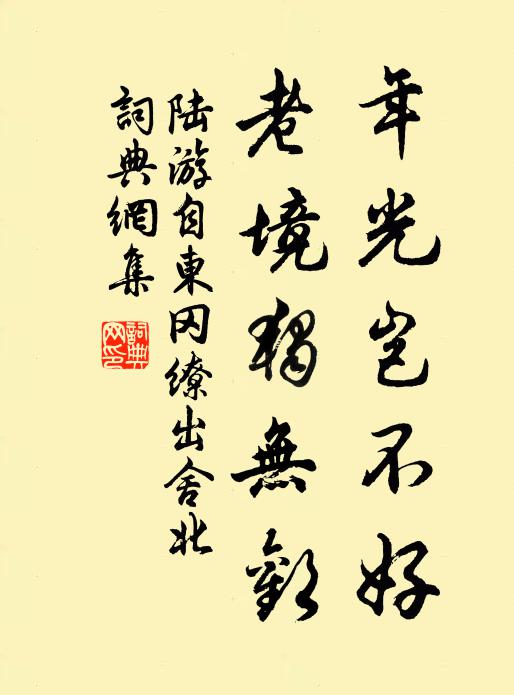 年光岂不好
老境獨無歡
陆游自東冈繚出舍北
詞典網集
詞典網印